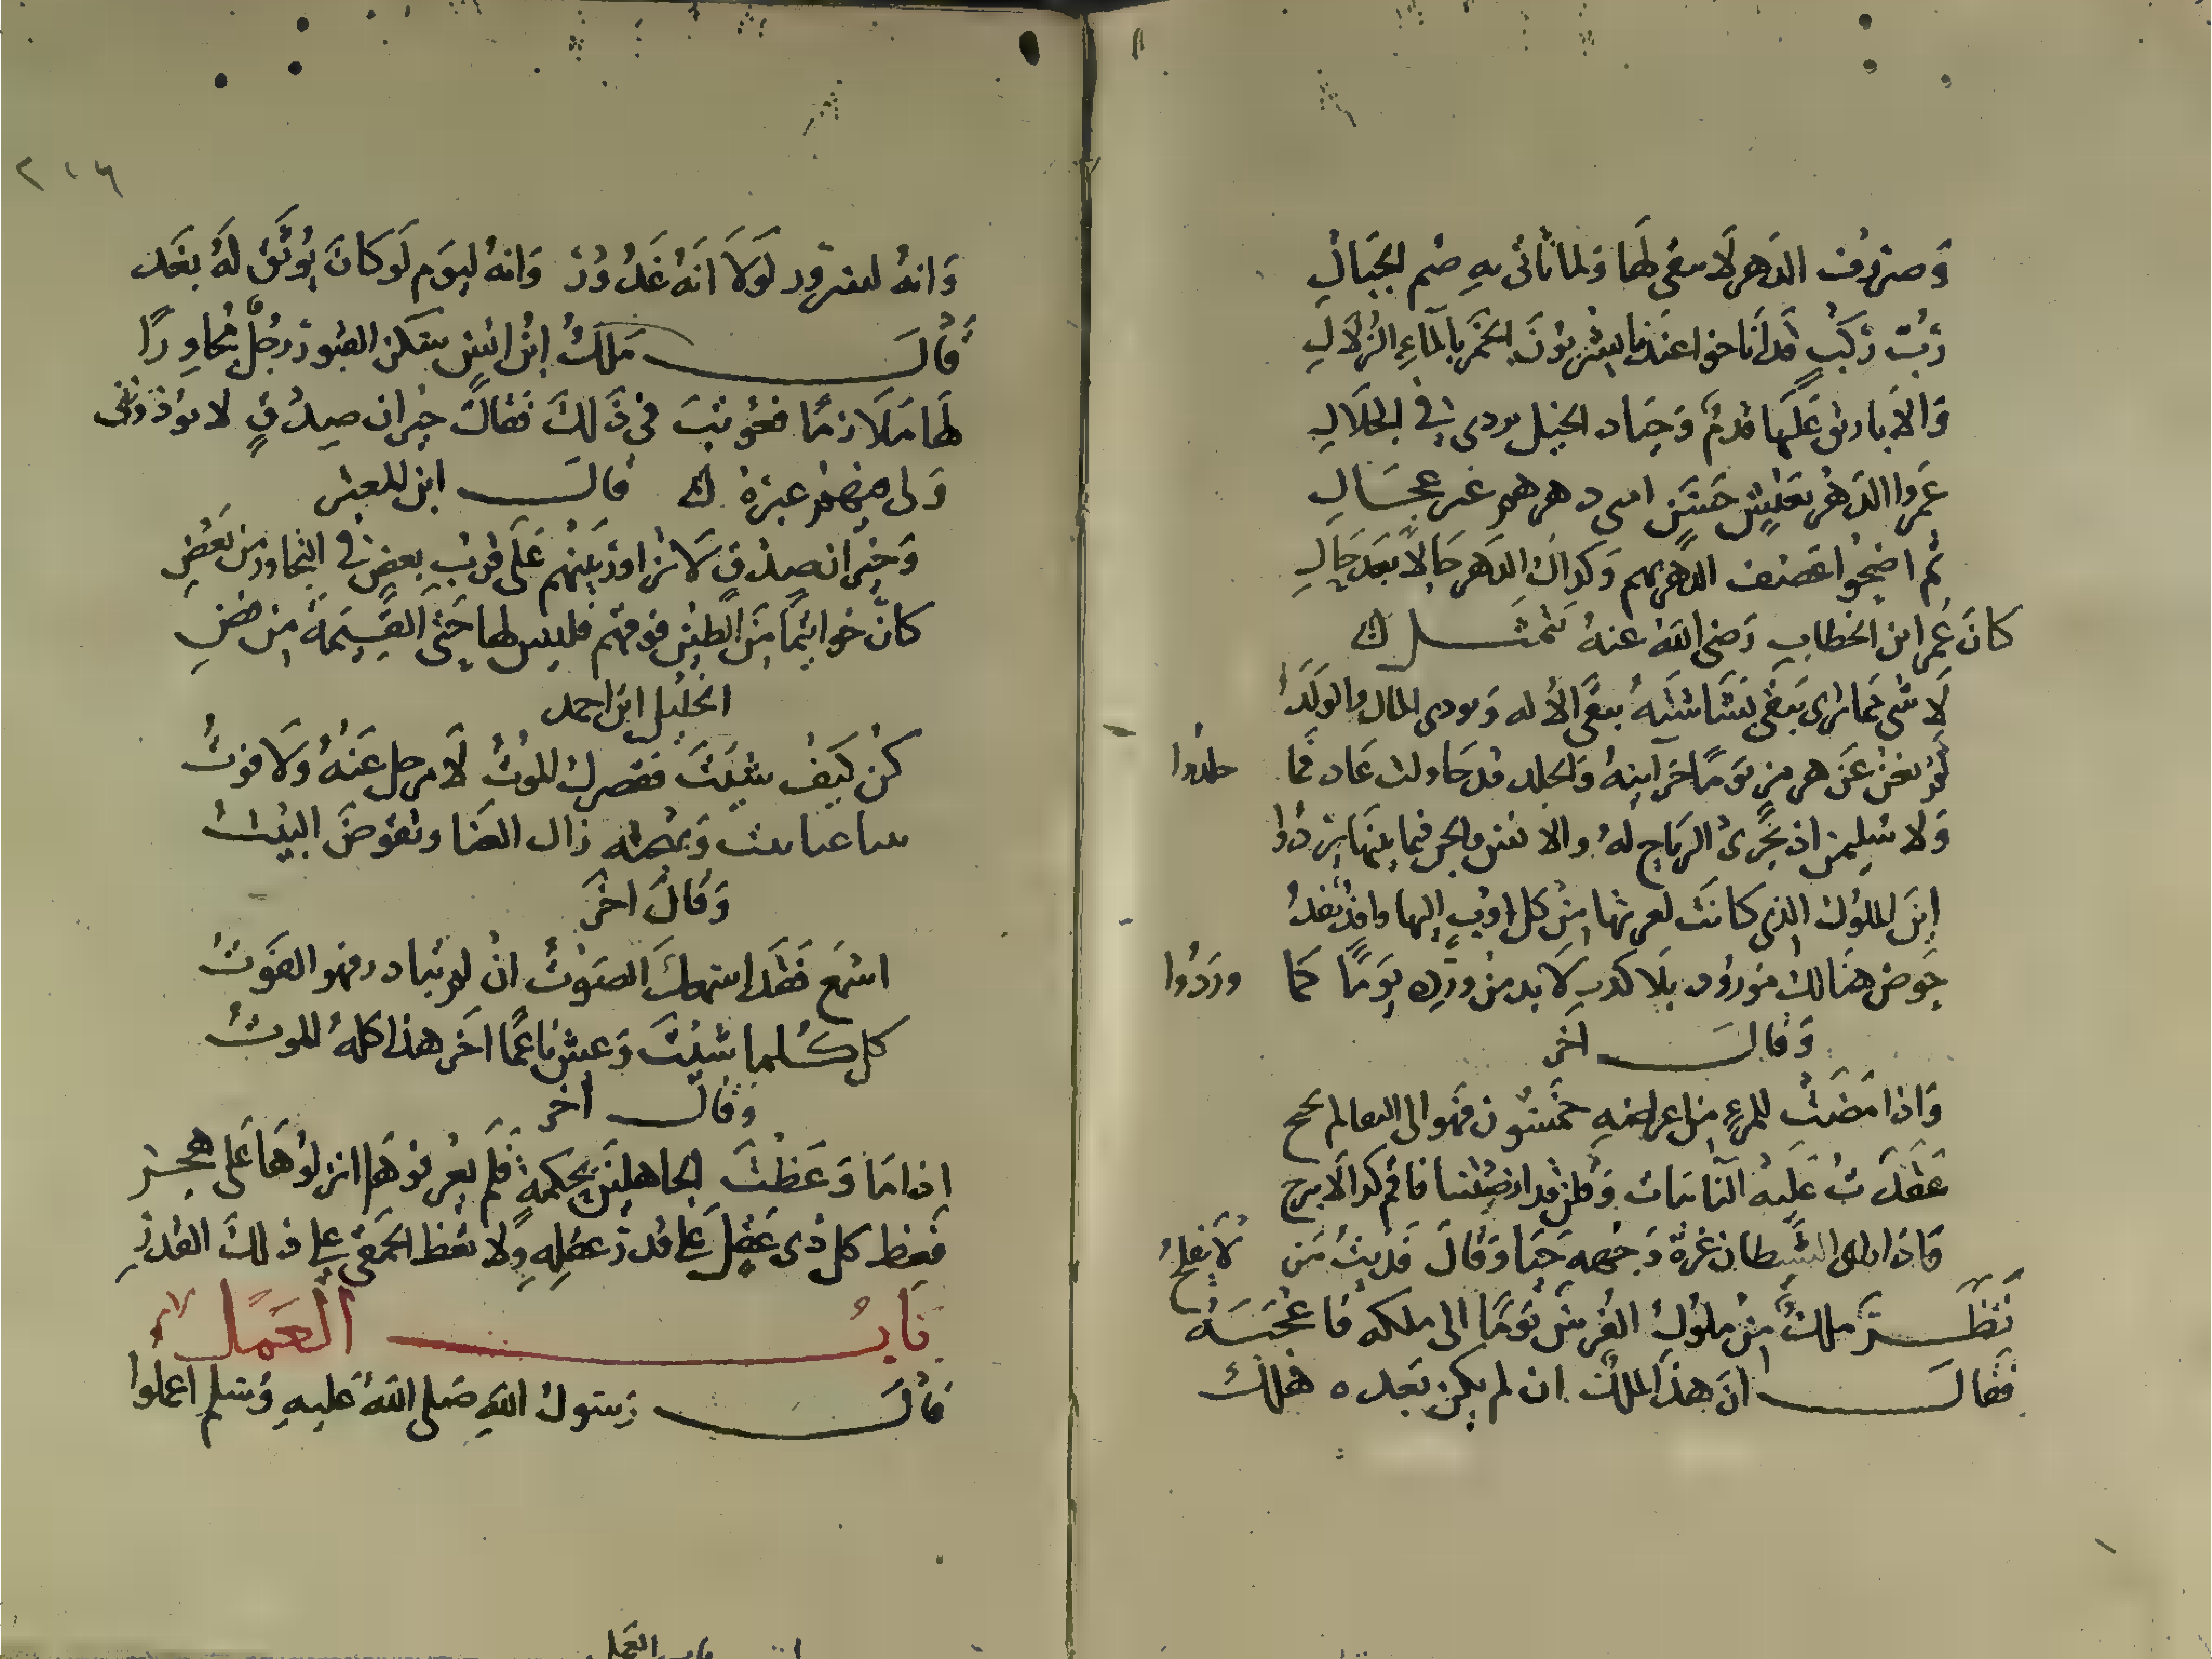 وَصروف الدَهر لا يبقى لَها وَلما تأتى به صُم الجبَالِ
رُبّ رَكبٍ قَد أناخوا عندنا يشربُونَ الخَمر بالماءِ الزُلالِ
وَالأباريق عَلَيها فدمٌ وَجياد الخيل تردى في الجلالِ
عَمروا الدَهر بعَيشٍ حَسَنٍ امنى دهرهم غير عجَالِ
ثم اضحُوا عصَف الدهر بهم وَكذاكَ الدَهر حَالاً بعَد حَالِ
كانَ عُمر ابن الخطابِ رَضى اللهُ عنهُ يَتمثَّل
لا شى مما ترى تبقى بَشَاشتهُ يبقى الاله وَيودى المال والوَلَدُ
لَم تغن عَن هرمز يَومًا خزآينهُ وَالخلد قد حَاولت عَاد فَما خلدُوا
وَلا سُليمن اذ تجرى الرياح لهُ والانس والجن فيما بينهَا تردُ
اينَ الملوك الذى كانت لعزتها من كل اوبٍ إليها وافدٌ يَفدُ
حَوض هنالك مَورُود بلا كدبٍ لا بد من وردِه يَومًا كما وردُوا
وَقالَ آخر
وَاذا مَضَتْ للمرءِ من اعوامهِ خمَسُون فهَو الى التعالم يجنح
عَقَدتُ عَليهِ النائبات وَقلن قد ارضيتنا فاقم كذا لا تبرح
فاذا راى الشَيطان غرة وَجهه حَيا وَقالَ فَديتُ مَن لا يفلحُ
نَظَرَ مَلكٌ من ملوك الفُرسِ يَومًا الى ملكه فاعْجَبَهُ
فقالَ انَ هذا الملك ان لم يكن بَعده هلك
٢١٦
وَانهُ لسرور لَولا انَهُ غَدُورٌ وَانهُ ليوَم لَو كانَ يُوثَق لَهُ بغَد
قالَ مَلكُ ابن انس سَكن القبور رجُلٌ مجاورًا
لها مَلازمًا فعُوتبَ فى ذَلكَ فقالَ جيران صِدُقٍ لا يؤذونى
وَلى فيهم عبرَة قالَ ابن المعتز
وَجيران صِدقٍ لا تزاور بَينهُم عَلى قربِ بعضٍ فى التجاور من بَعْضِ
كانّ خواتيمًا منَ الطين فوقهم فليس لها حَتى القيمةِ من فضِ
الخليل ابن احمد
كُن كيَف شئتَ فقصرك الموتُ لا مرحل عَنهُ وَلا فوتُ
بينا غنا بيت وَبهجته زال الغنا وتقوضَ البيتُ
وَقالَ اخر
اسمع فقَد اسمعكَ الصَوتُ ان لم تبادر فهو الفَوتُ
كل كُلما شئتَ وَعش ناعمًا آخر هذا كلهُ الموتُ
وَقالَ آخر
اذا مَا وَعَظْتَ الجاهلينَ بحكمةٍ فَلَم يَعرفوهَا انزلوُهَا عَلى هجر
فَعظ كل ذى عَقلٍ على قدر عَقلِهِ وَلا تعظ الحَمقى على ذلك القَدرِ
بَابُ العَمَل
قالَ رَسول اللهِ صَلى اللهُ عَليهِ وَسَلم اعملوا
باب العمل